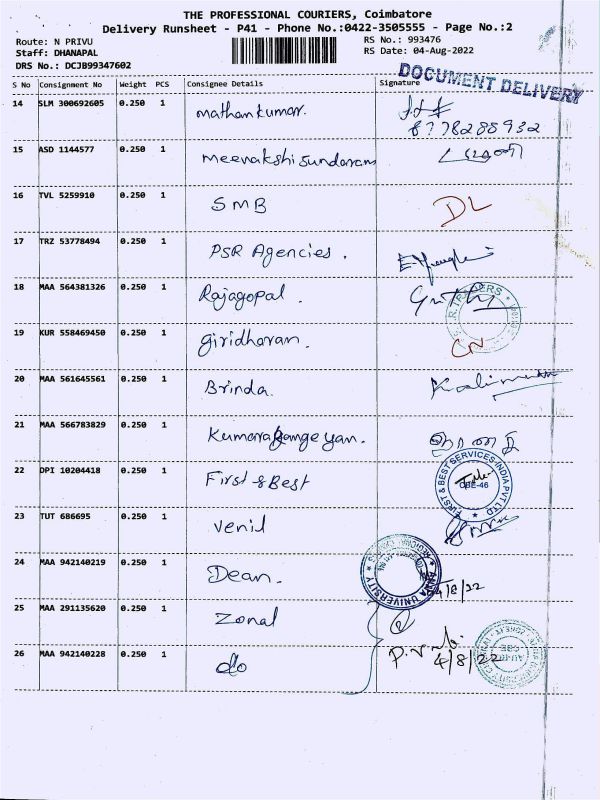 THE PROFESSIONAL COURIERS, Coimbatore
Delivery Runsheet - P41 - Phone No.:0422-3505555 - Page No.:2
Route: N PRIVU RS No.: 993476
Staff: DHANAPAL RS Date: 04-Aug-2022
DRS No.: DCJB99347602
DOCUMENT DELIVERY
S No Consignment No Weight PCS Consignee Details Signature
14 SLM 300692605 0.250 1 Mathankumar.
8778288932
15 ASD 1144577 0.250 1 Meenakshi Sundaram
16 TVL 5259910 0.250 1 SMB DL
17 TRZ 53778494 0.250 1 PSR Agencies.
18 MAA 564381326 0.250 1 Rajagopal.
19 KUR 558469450 0.250 1 giridharan. CN
20 MAA 561645561 0.250 1 Brinda.
21 MAA 566783829 0.250 1
22 DPI 10204418 0.250 1 First & Best
FIRST & BEST SERVICES INDIA PVT LTD
CBE-46
23 TUT 686695 0.250 1 Venil
24 MAA 942140219 0.250 1 Dean. 4/8/22
ANNA UNIVERSITY
25 MAA 291135620 0.250 1 Zonal
26 MAA 942140228 0.250 1 do 4/8/22